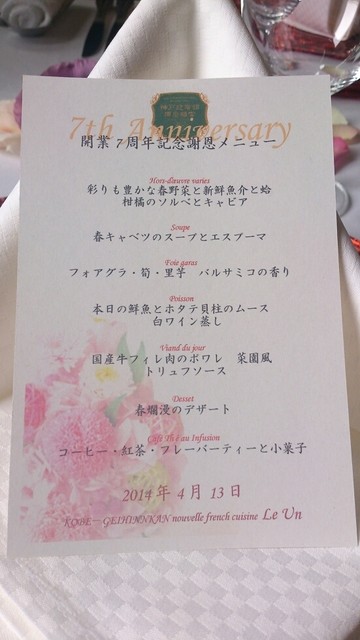 神戸迎賓館
7th Anniversary
開業7周年記念謝恩メニュー
Hors-d'œuvre varies
彩りも豊かな春野菜と新鮮魚介と蛤
柑橘のソルベとキャビア
Soupe
春キャベツのスープとエスプーマ
Foie garas
フォアグラ・筍・里芋 バルサミコの香り
Poisson
本日の鮮魚とホタテ貝柱のムース
白ワイン蒸し
Viand du jour
国産牛フィレ肉のポワレ 菜園風
トリュフソース
Desset
春爛漫のデザート
Café Thé au Infusion
コーヒー・紅茶・フレーバーティーと小菓子
2014年 4月 13日
KOBE－GEIHINNKAN nouvelle french cuisine Le Un